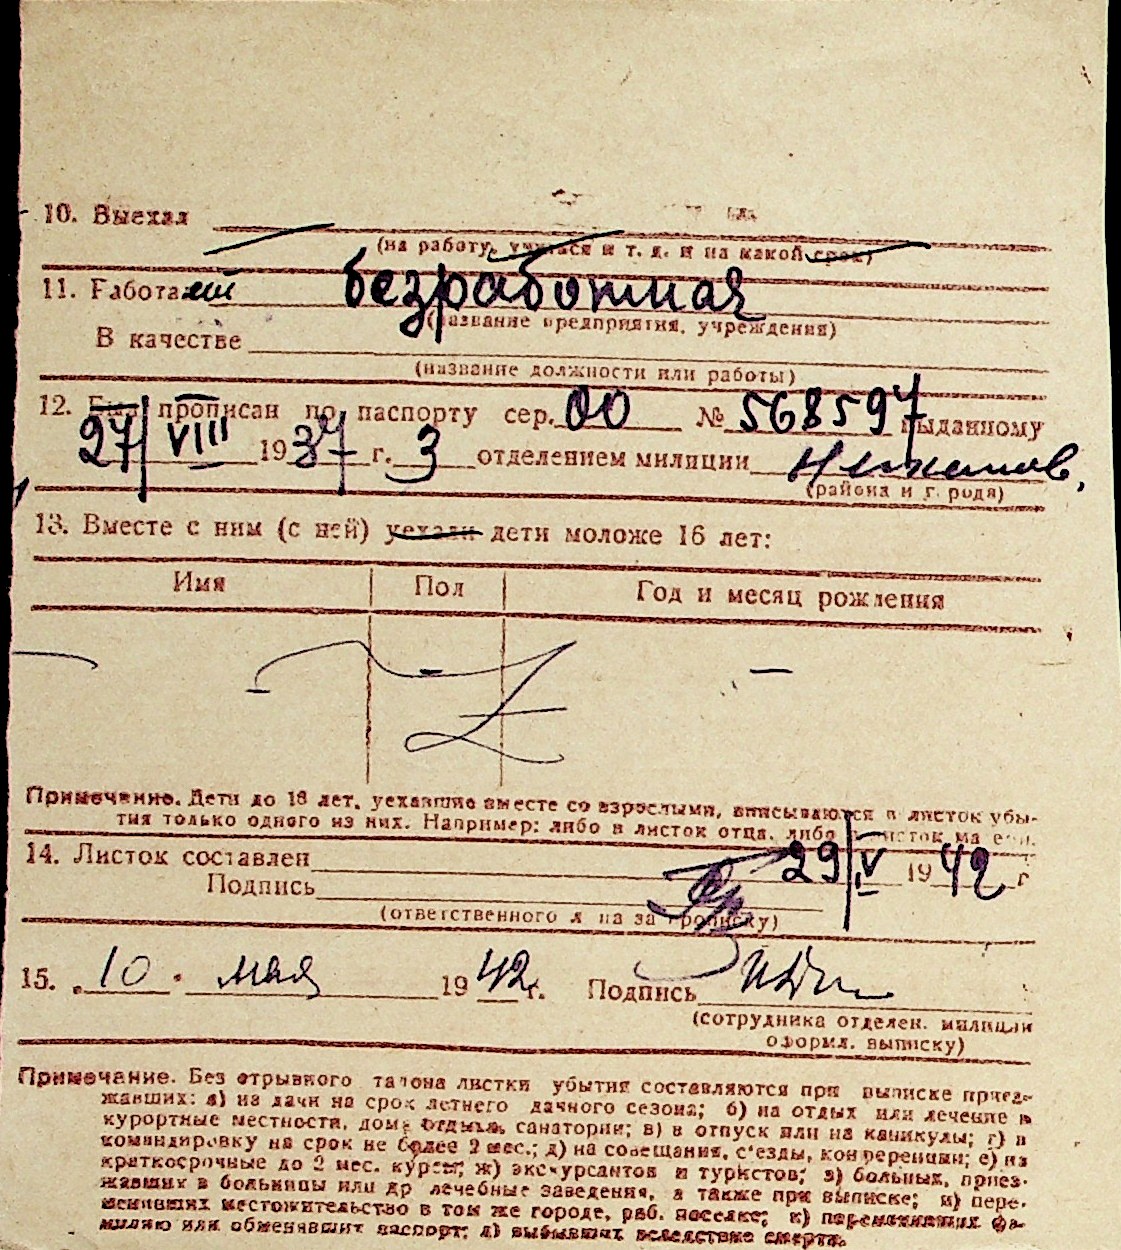 10. Выехал
(на работу, учиться и т. д. и на какой срок)
11. Работа безработная
(название предприятия, учреждения)
В качестве
(название должности или работы)
12. Был прописан по паспорту сер. 00 № 568597 выданному
27/VIII 1937 г. 3 отделением милиции
(района и г. родя)
13. Вместе с ним (с ней) уехали дети моложе 16 лет:
Имя Пол Год и месяц рождения
— — —
Примечание. Дети до 18 лет, уехавшие вместе со взрослыми, вписываются в листок убы-
тия только одного из них. Например: либо в листок отца, либо в листок ма ери.
14. Листок составлен 29/V 1942 г
Подпись
(ответственного л на за прописку)
15. „ 10 " мая 1942 г. Подпись
(сотрудника отделен. милиции
оформл. выписку)
Примечание. Без отрывного талона листки убытия составляются при выписке приез-
жавших: а) на дачи на срок летнего дачного сезона; б) на отдых или лечение в
курортные местности, дома отдыха, санатории; в) в отпуск или на каникулы; г) в
командировку на срок не более 2 мес.; д) на совещания, съезды, конференции; е) на
краткосрочные до 2 мес. курсы; ж) экскурсантов и туристов; з) больных, приез-
жавших в больницы или др лечебные заведения, а также при выписке; и) пере-
менивших местожительство в том же городе, раб. поселке; к) переменивших фа-
милию или обменявших паспорт; л) выбывших вследствие смерти.